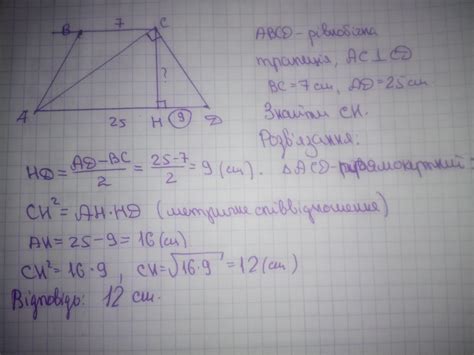 B 7 C
?
A 25 H 9 D
ABCD - рівнобічна
трапеція, AC⊥CD
BC = 7 см, AD = 25 см
Знайти CH.
Розв'язання:
HD = (AD-BC)/2 = (25-7)/2 = 9 (см). △ACD - прямокутний:
CH² = AH·HD (метричне співвідношення)
AH = 25 - 9 = 16 (см)
CH² = 16·9, CH = √16·9 = 12 (см)
Відповідь: 12 см.